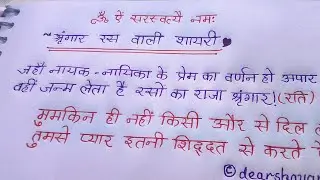 ॐ ऐं सरस्वत्यै नमः
~ श्रृंगार रस वाली शायरी
जहाँ नायक-नायिका के प्रेम का वर्णन हो अपार
वहीं जन्म लेता है रसों का राजा श्रृंगार! (रति)
मुमकिन ही नहीं किसी और से दिल
तुमसे प्यार इतनी शिद्दत से करते
©dearshayar